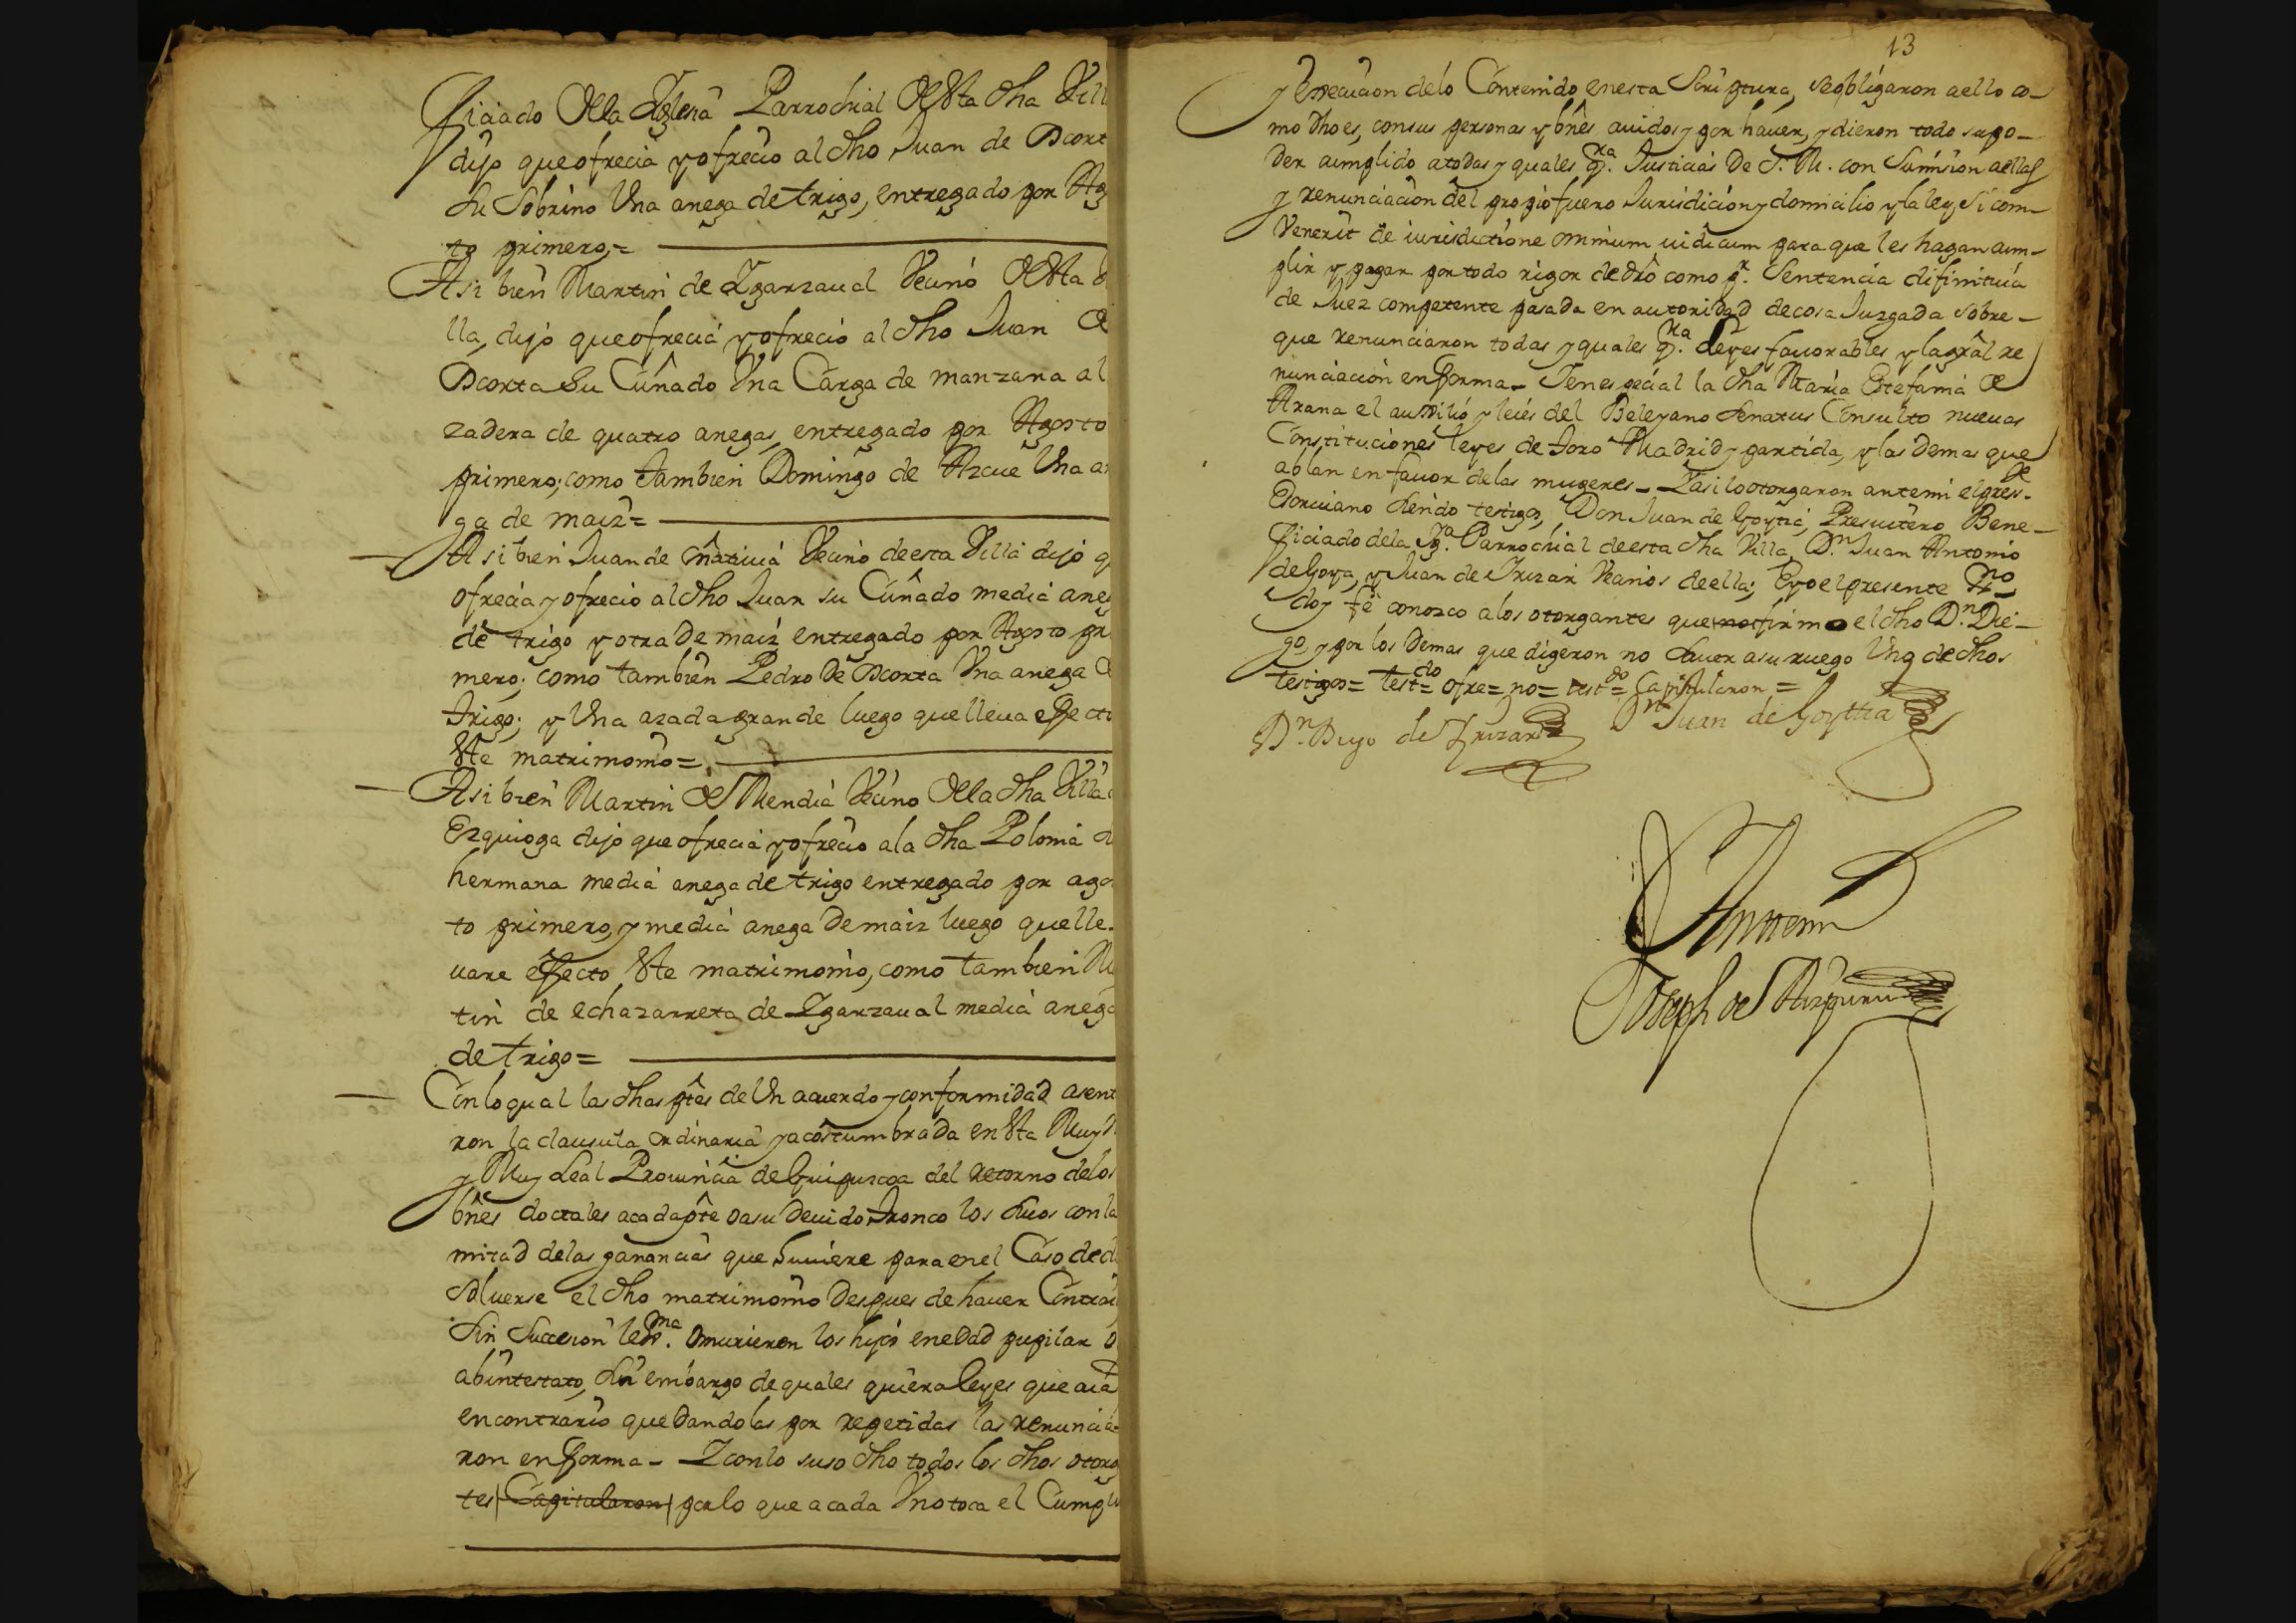 ficiado de la Iglesia Parrochial de esta dha Vill
dijo que ofrecia y ofrecio al dho Juan de Dcort
su Sobrino Una anega de trigo, entregado por Ag
to primero,=
Asi bien Martin de Ygarzaual Vecino de esta
lla, dijo que ofrecia y ofrecio al dho Juan de
Dcorta Su Cuñado Vna Carga de manzana al
zadera de quatro anegas, entregado por Agosto
primero; como tambien Domingo de Azcue Una a
ga de maiz=
Asi bien Juan de Vecino de esta Villa dijo q
ofrecia y ofrecio al dho Juan su Cuñado media ane
de trigo y otra de maiz entregado por Agosto pr
mero; como tambien Pedro de Dcorta Vna anega d
trigo; y Una azada grande luego que lleua effecto
este matrimonio=
Asi bien Martin de Mendia Vecino de la dha Villa
Ezquioga dijo que ofrecia y ofrecio a la dha Polonia
hermana media anega de trigo entregado por ago
to primero, y media anega de maiz luego que lle-
uare effecto este matrimonio, como tambien
tin de echazarreta de Ygarzaual media anega
de trigo=
Con lo qual las dhas ptes de Un acuerdo y conformidad asent
ron la clausula ordinaria y acostumbrada en esta Muy
y Muy Leal Prouincia de Guipuzcoa del retorno de los
bnes doctales a cada pte o a su deuido tronco los suos con la
mitad de las ganancias que huuiere para en el Caso de di
soluerse el dho matrimonio despues de hauer Contrai
sin Succesion legma. o murieren los hijos en edad pupilar o
abintestato, sin embargo de quales quiera leyes que aia
en contrario que dandolas por repetidas las renuncia-
ron en fforma - Y con lo suso dho todos los dhos otorg
tes Capitularon por lo que a cada Vno toca el Cumpli
13
y Execucion de lo Contenido en esta Scriptura, se obligaron a ello co-
mo dho es, con sus personas y bnes auidos y por hauer, y dieron todo su po-
der cumplido a todas y quales q.ra Justicias de S. M. con Sumision a ellas
y renunciacion del propio fuero Jurisdicion y domicilio y la ley Si com-
Venerit de iurisdictione omnium iudicum para que les hagan cum-
plir y pagar por todo rigor de dro como pr. Sentencia difinitiua
de Juez competente pasada en autoridad de cosa Juzgada sobre-
que renunciaron todas y quales q.ra leyes fauorables y la gral re
nunciacion en fforma - Y en especial la dha Maria Estefania de
Arana el auxilio y leies del Beleyano Senatus Consulto nueuas
Constituciones leyes de Toro Madrid y partida, y las demas que
ablan en fauor de las mugeres - Y asi lo otorgaron ante mi el pres.te
Escriuano siendo testigos, Don Juan de Goytia, Presuitero Bene-
ficiado de la Yga. Parrochial de esta dha Villa, D.n Juan Antonio
de Goya, y Juan de Irizar Vecinos de ella; E yo el presente ssno
doy fe conozco a los otorgantes que no firmo el dho D.n Die-
go, y por los demas que digeron no sauer a su ruego Uno de dhos
testigos= test.do= ofre= no= test.do= Capitularon=
D.n Diego de Irizar Dn Juan de Goyttia
Ante mi
Joseph de Aizpuru